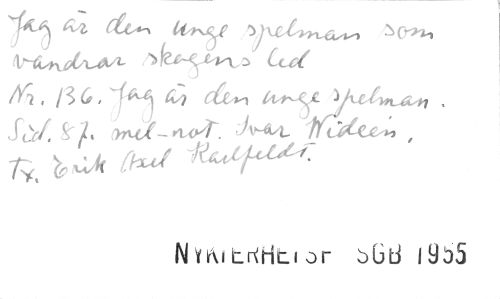 Jag är den unge spelman som
vandrar skogens led
Nr. 136. Jag är den unge spelman.
Sid. 87. mel-not. Ivar Widéen,
Tx. Erik Axel Karlfeldt.
NYKTERHETSF SGB 1955